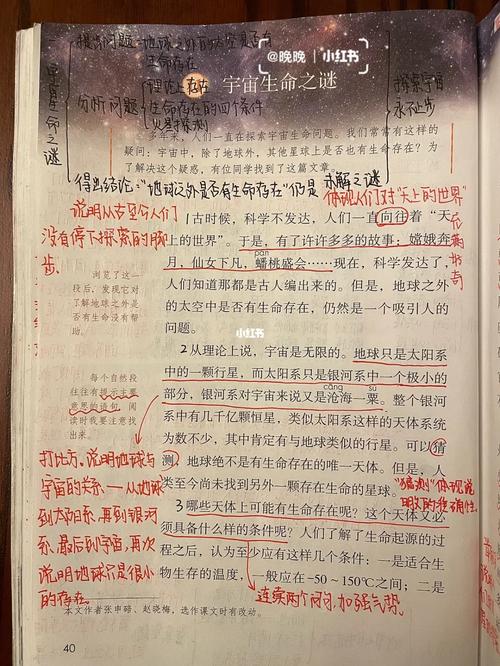 @晚晚 小红书
提出问题:地球之外的太空是否有
生命存在
宇宙生命之谜
分析问题
理论上存在
生命存在的四个条件
火星探测
探索宇宙
永不止步
得出结论:"地球之外是否有生命存在"仍是未解之谜
宇宙生命之谜
多年来,人们一直在探索宇宙生命问题。我们常常有这样的
疑问:宇宙中,除了地球外,其他星球上是否也有生命存在?为
了解决这个疑惑,有位同学找到了这篇文章。
体现人们对"天上的世界"
说明从古至今人们
没有停下探索的脚
步。
1古时候,科学不发达,人们一直向往着“天
上的世界”。于是,有了许许多多的故事:嫦娥奔
pán
月,仙女下凡,蟠桃盛会……现在,科学发达了,
人们知道那都是古人编出来的。但是,地球之外
的太空中是否有生命存在,仍然是一个吸引人的
问题。
浏览了这一
段后,发现它对
了解地球之外是
否有生命没有帮
助。
小红书
2从理论上说,宇宙是无限的。地球只是太阳系
中的一颗行星,而太阳系只是银河系中一个极小的
cāng sù
部分,银河系对宇宙来说又是沧海一粟。整个银河
系中有几千亿颗恒星,类似太阳系这样的天体系统
为数不少,其中肯定有与地球类似的行星。可以猜
测,地球绝不是有生命存在的唯一天体。但是,人
类至今尚未找到另一颗存在生命的星球。
每个自然段
往往有提示主要
意思的语句,阅
读时我要注意找
出来。
"猜测"体现说
明文的准确性。
打比方。说明地球与
宇宙的关系——从地球
到太阳系,再到银河
系,最后到宇宙,再次
说明地球只是很小
的存在。
3哪些天体上可能有生命存在呢?这个天体又必
须具备什么样的条件呢?人们了解了生命起源的过
程之后,认为至少应有这样几个条件:一是适合生
物生存的温度,一般应在-50~150℃之间;二是
连续两个问句,加强气势。
本文作者张申碚、赵晓梅,选作课文时有改动。
40